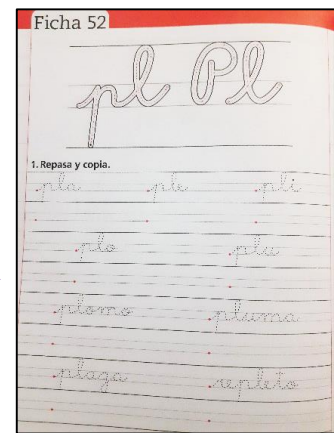 Ficha 52
pl Pl
1. Repasa y copia.
pla ple pli
plo plu
plomo pluma
plaga repleto